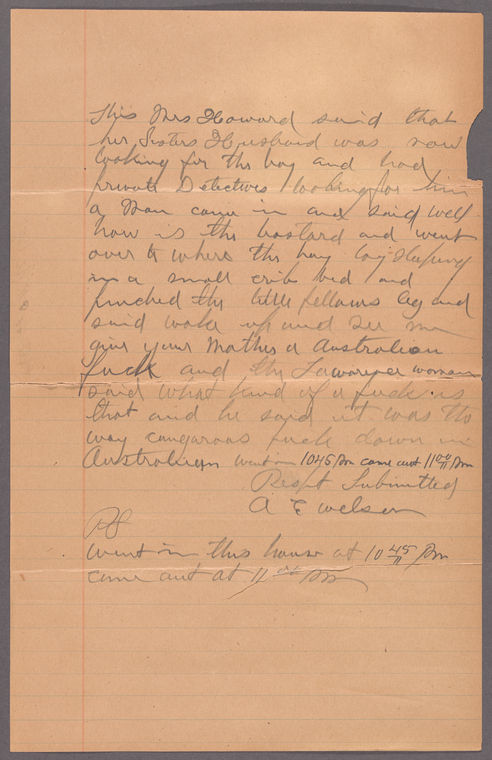 This Mrs Howard said that
her Sisters Husband was now
looking for the boy and had
private Detectives looking for him
a Man came in and said well
how is the bastard and went
over to where the boy lay sleeping
in a small crib bed and
pinched the little fellows leg and
said wake up and see me
give your Mother a Australian
fuck and the woman
said what kind of a fuck is
that and he said it was the
way cangaroos fuck down in
Australian went in 1045 Pm came out 11 00 Pm
Respt Submitted
A E Welson
PS
went in this house at 10 45 Pm
came out at 11 00 Pm